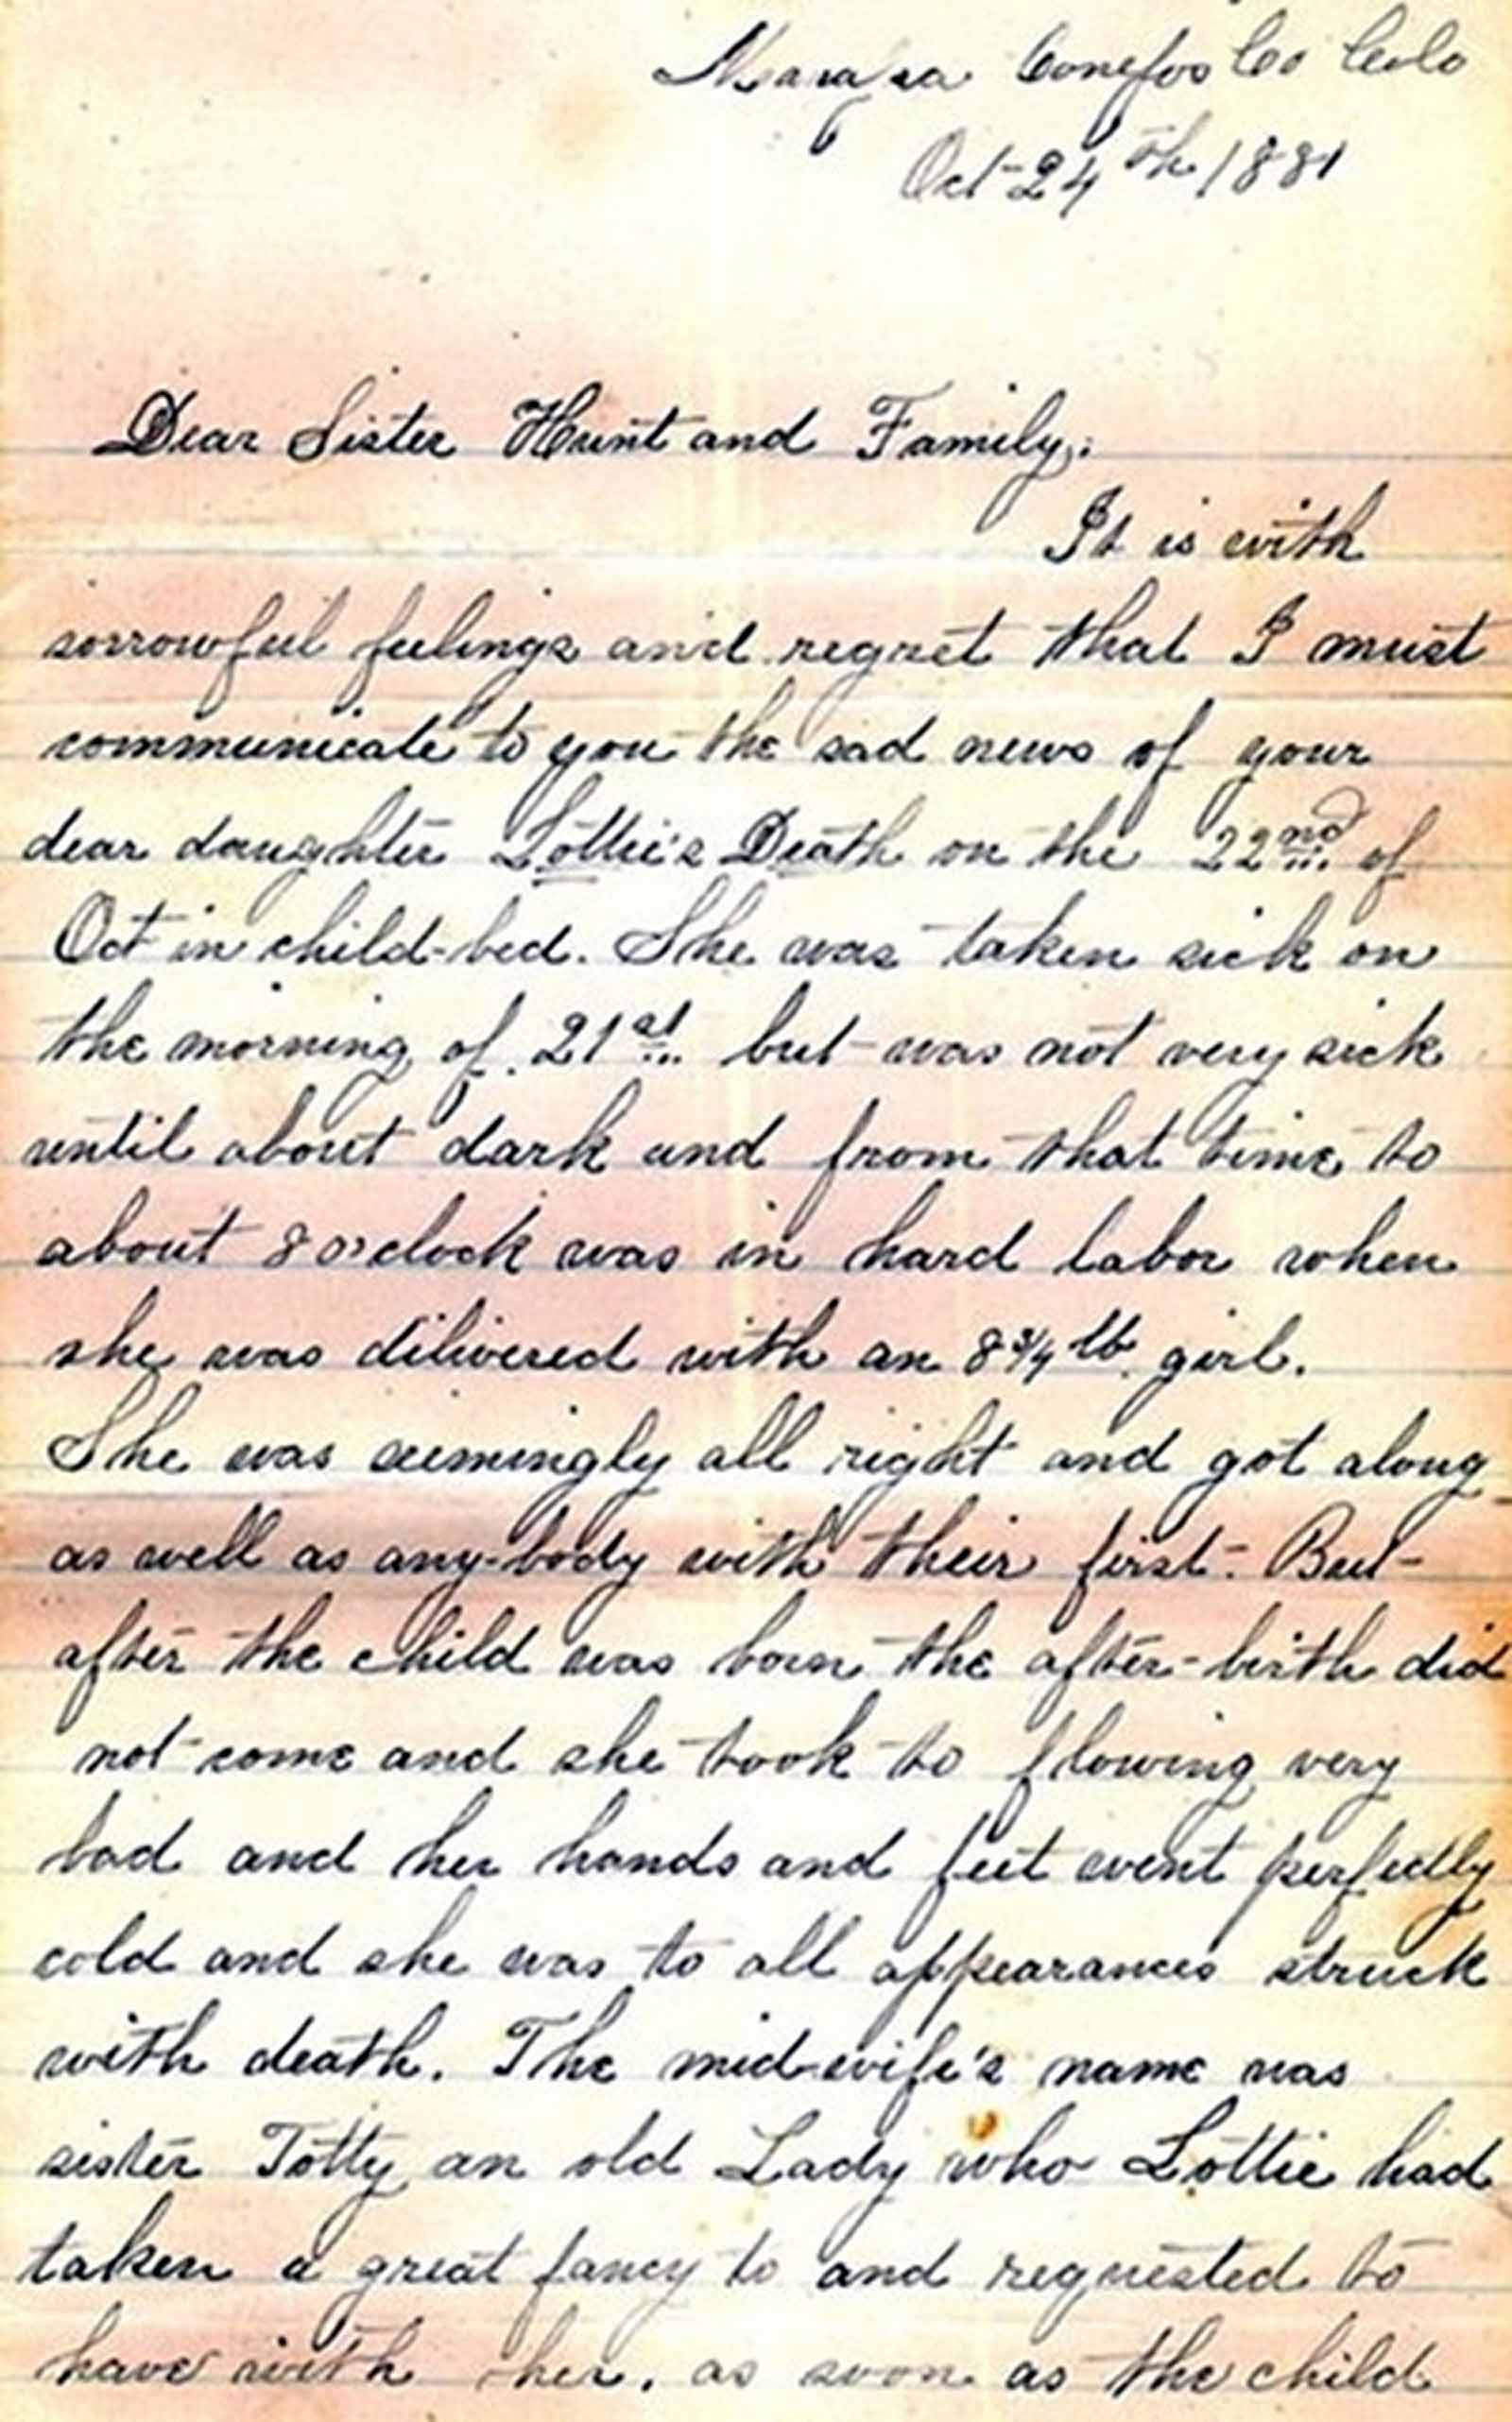 Manassa Conejos Co Colo
Oct 24th 1881
Dear Sister Hunt and Family;
It is with
sorrowful feelings and regret that I must
communicate to you the sad news of your
dear daughter Lottie's Death on the 22nd of
Oct in child-bed. She was taken sick on
the morning of 21st but was not very sick
until about dark and from that time to
about 8 o'clock was in hard labor when
she was dilivered with an 8 3/4 lb girl.
She was seemingly all right and got along
as well as any-body with their first. But
after the child was born the after-birth did
not come and she took to flowing very
bad and her hands and feet went perfectly
cold and she was to all appearances struck
with death. The mid-wife's name was
sister Totty an old Lady who Lottie had
taken a great fancy to and requested to
have with her. as soon as the child